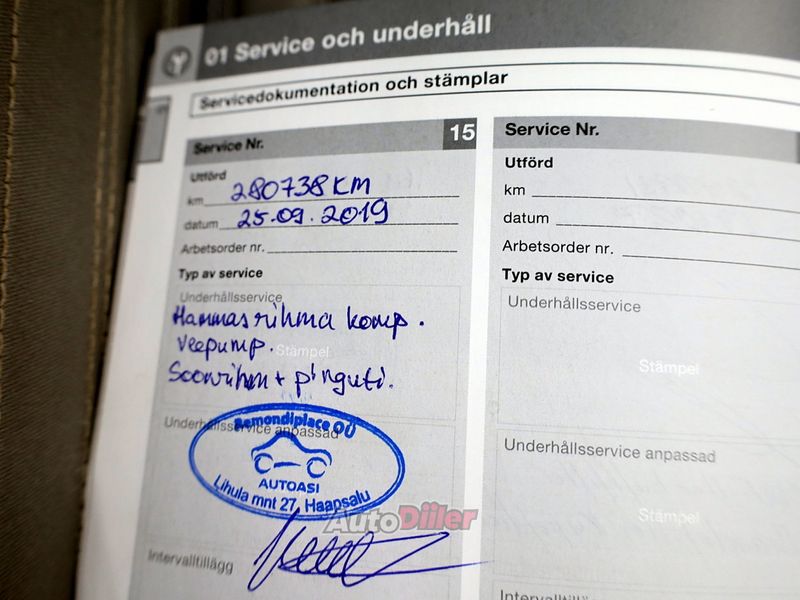 01 Service och underhåll
Servicedokumentation och stämplar
Service Nr. 15
Utförd
km 280738 KM
datum 25.09.2019
Arbetsorder nr.
Typ av service
Underhållsservice
Hammasrihma komp.
Veepump.
Stämpel
Soonrihm + pinguti.
Underhållsservice anpassad
Remondiplace OÜ
AUTOASI
Lihula mnt 27, Haapsalu
Intervalltillägg
Service Nr.
Utförd
km
datum
Arbetsorder nr.
Typ av service
Underhållsservice
Stämpel
Underhållsservice anpassad
Stämpel
Intervalltillägg
AutoDiiler